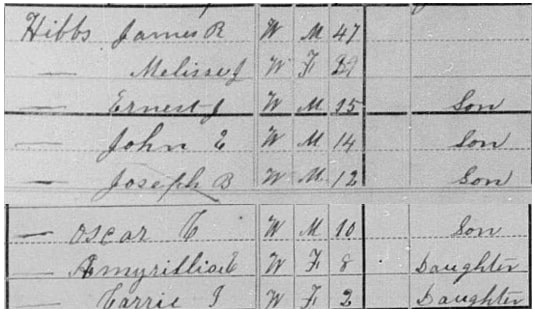 Hibbs James R W M 47
— Melissa J W F
— Ernest J W M 15 Son
— John E W M 14 Son
— Joseph B W M 12 Son
— Oscar W M 10 Son
— Amyrillis E W F 8 Daughter
— Carrie W F 2 Daughter